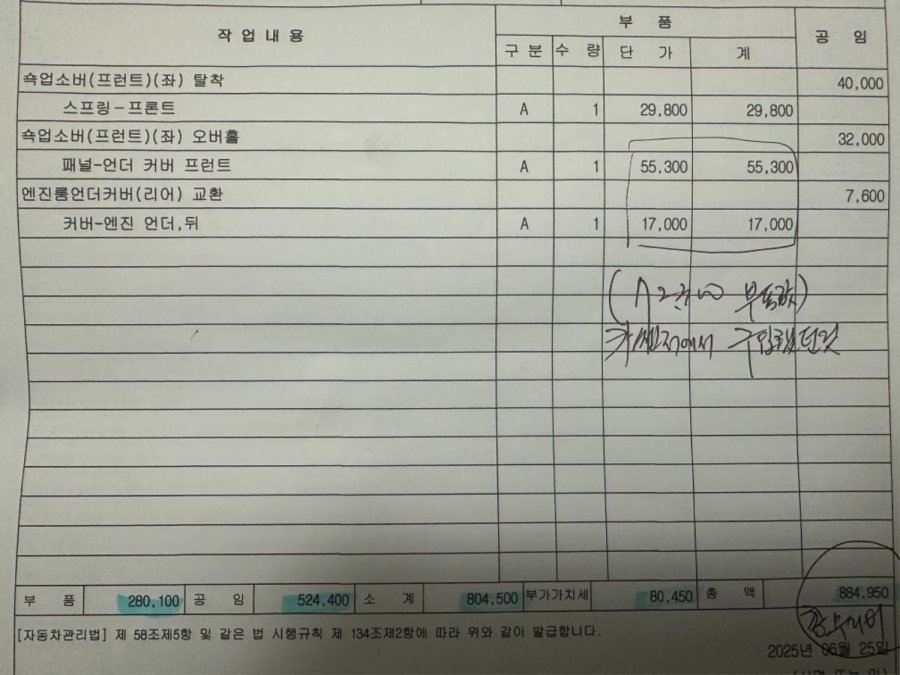 작 업 내 용 부 품 공 임
구 분 수 량 단 가 계
쇽업소버(프런트)(좌) 탈착 40,000
스프링-프론트 A 1 29,800 29,800
쇽업소버(프런트)(좌) 오버홀 32,000
패널-언더 커버 프런트 A 1 55,300 55,300
엔진룸언더커버(리어) 교환 7,600
커버-엔진 언더,뒤 A 1 17,000 17,000
에서
부 품 280,100 공 임 524,400 소 계 804,500 부가가치세 80,450 총 액 884,950
[자동차관리법] 제 58조제5항 및 같은 법 시행규칙 제 134조제2항에 따라 위와 같이 발급합니다.
2025년 06월 25일